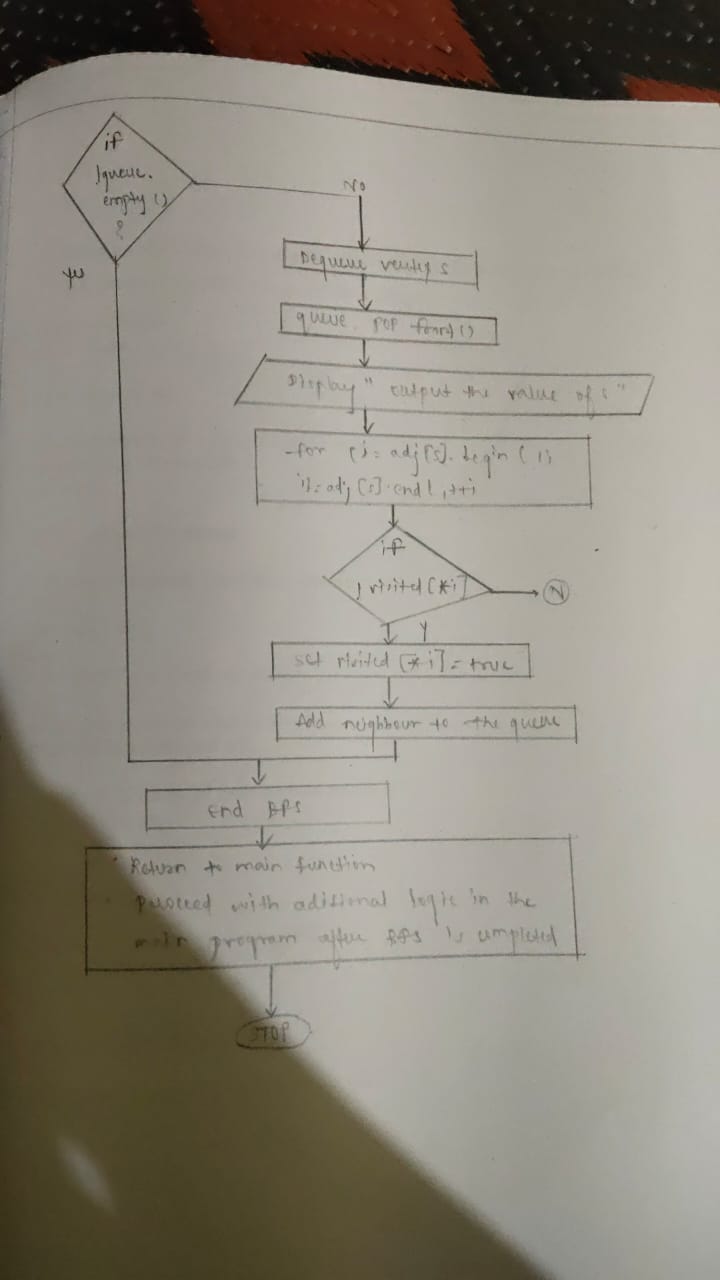 if
!queue.
empty ()
?
No
Yes
Dequeue vertex s
queue. pop front()
Display " output the value of s "
for (i = adj[s]. begin ( );
i != adj [s].end(, ++i
if
! visited [*i]
N
Y
set visited [*i] = true
Add neighbour to the queue
End BFS
Return to main function
Proceed with aditional logic in the
main program after BFS is completed
STOP